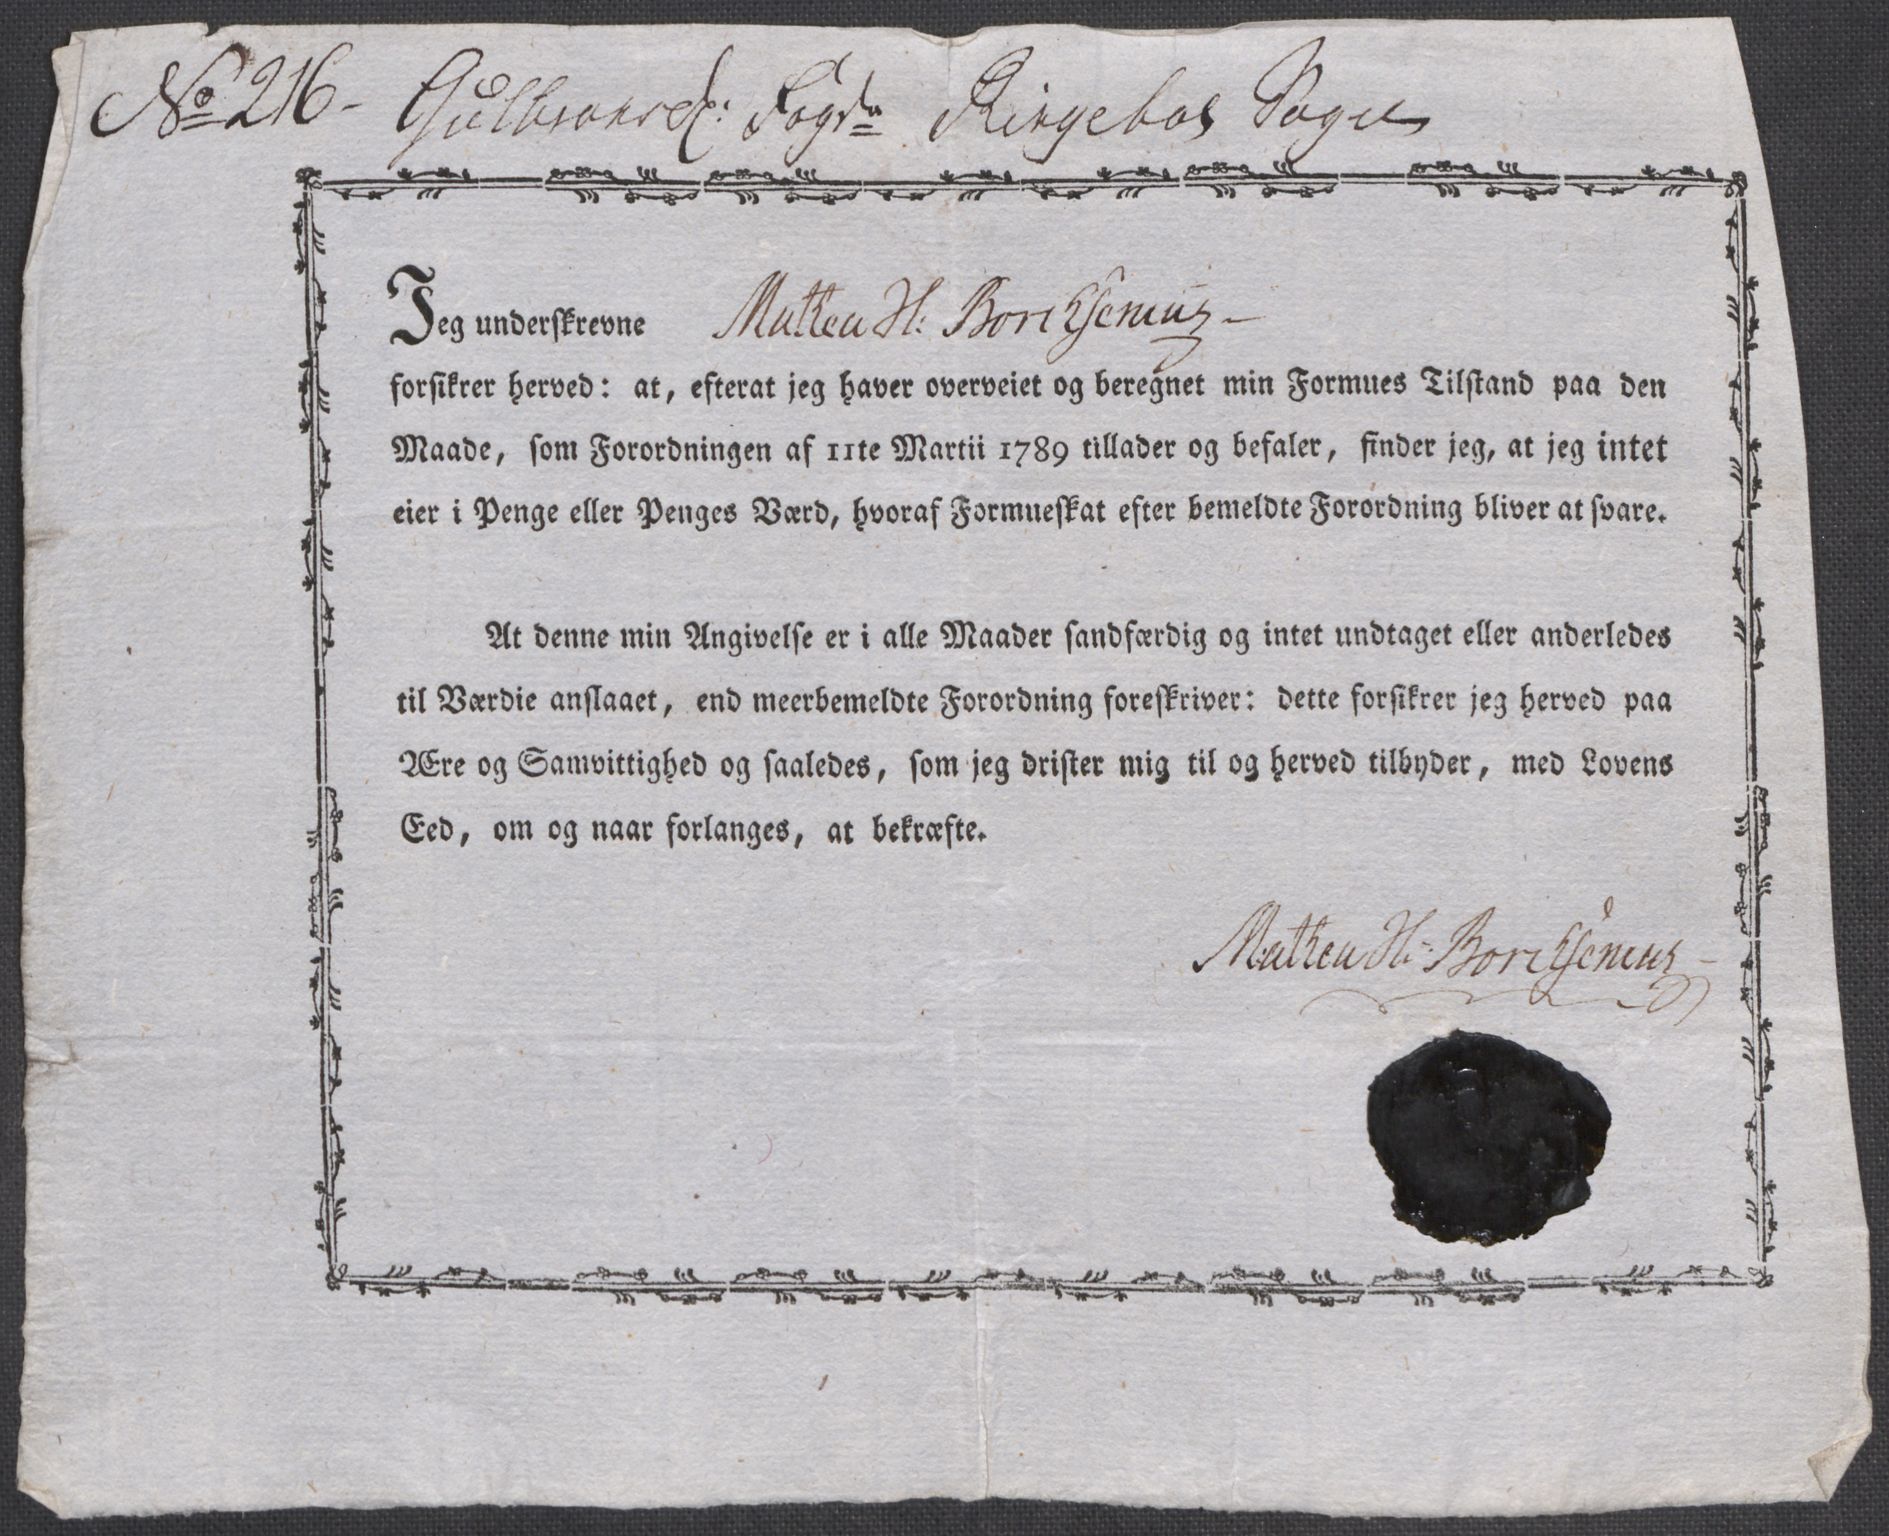 No 216 - Gulbrands d: Fogd.. Ringeboe Sogn
Jeg underskrevne Mathea H: Borchsenius -
forsikrer herved: at, efterat jeg haver overveiet og beregnet min Formues Tilstand paa den
Maade, som Forordningen af 11te Martii 1789 tillader og befaler, finder jeg, at jeg intet
eier i Penge eller Penges Værd, hvoraf Formueskat efter bemeldte Forordning bliver at svare.
At denne min Angivelse er i alle Maader sandfærdig og intet undtaget eller anderledes
til Værdie anslaaet, end meerbemeldte Forordning foreskriver: dette forsikrer jeg herved paa
Ære og Samvittighed og saaledes, som jeg drister mig til og herved tilbyder, med Lovens
Eed, om og naar forlanges, at bekræfte.
Mathea H: Borchsenius -